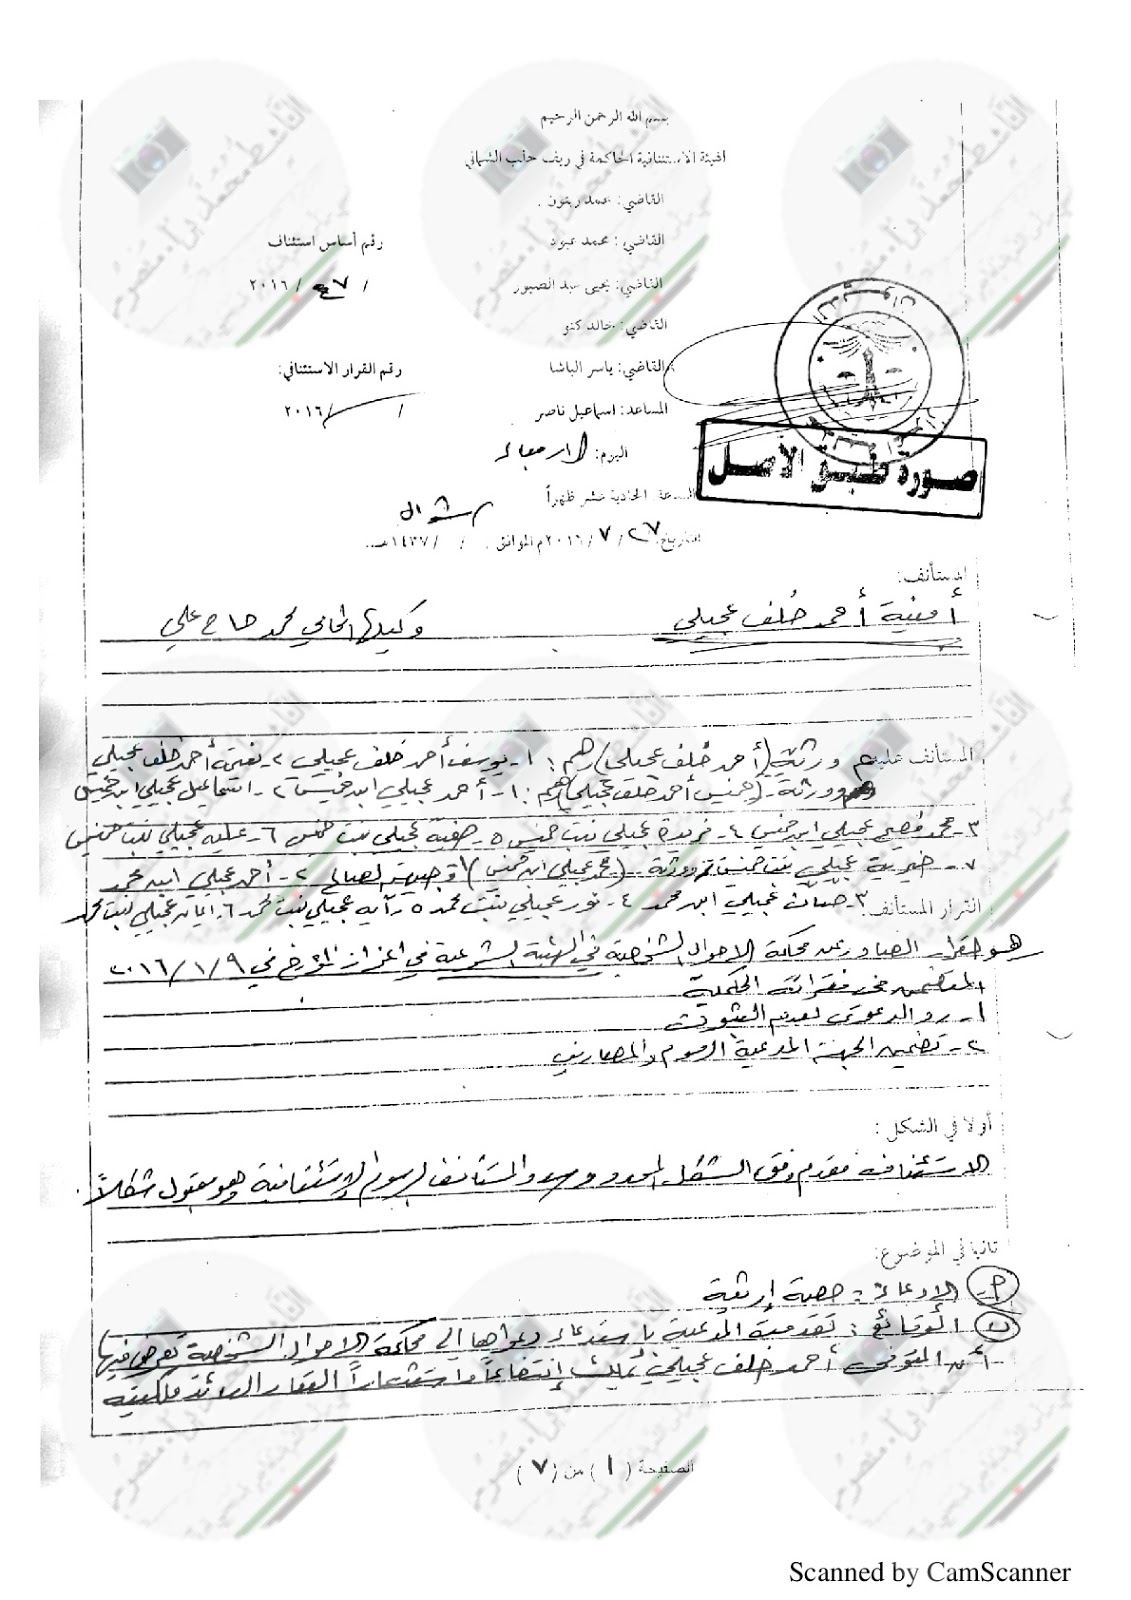 بسم الله الرحمن الرحيم
الهيئة الاستئنافية الحاكمة في ريف حلب الشمالي
القاضي: محمد زيتون
القاضي: محمد عبود
رقم أساس استئناف
القاضي: يحيى عبد الصبور
/ ٢٠١٦
القاضي: خالد كنو
القاضي: ياسر الباشا
رقم القرار الاستئنافي:
المساعد: اسماعيل ناصر
/ ٢٠١٦
اليوم: الاربعاء
صورة طبق الأصل
الساعة الحادية عشر ظهراً
شوال
التاريخ: ٢٧ / ٧ / ٢٠١٦م الموافق / / ١٤٣٧هـ
المستأنف:
أمينة أحمد خلف عجيلي
وكيلها المحامي محمد حاج علي
المستأنف عليهم ورثة (أحمد خلف عجيلي) هم: ١- يوسف أحمد خلف عجيلي ٢- أحمد خلف عجيلي
وورثة (خميس أحمد خلف عجيلي) هم: ١- أحمد عجيلي ابن خميس ٢- اسماعيل عجيلي ابن خميس
٣- محمد عجيلي ابن خميس ٤- فريدة عجيلي بنت خميس ٥- صفية عجيلي بنت خميس ٦- عليه عجيلي بنت خميس
٧- خيرية عجيلي بنت خميس وورثة (محمد عجيلي ابن خميس) ١- ٢- أحمد عجيلي ابن محمد
القرار المستأنف:
٣- عجيلي ابن محمد ٤- نور عجيلي بنت محمد ٥- آيه عجيلي بنت محمد ٦- ايمان عجيلي بنت محمد
هو القرار الصادر عن محكمة الاحوال الشخصية في الهيئة الشرعية في اعزاز المؤرخ في ٢٠١٦/١/٩
المتضمن في فقراته الحكمية
١- رد الدعوى لعدم الثبوت
٢- تضمين الجهة المدعية الرسوم والمصاريف
أولا في الشكل:
الاستئناف مقدم وفق الشكل المحدد وسدد المستأنف الرسوم الاستئنافية وهو مقبول شكلاً.
ثانيا في الموضوع:
أ- الادعاء: حصة إرثية
ب- الوقائع: تقدمت المدعية باستدعاء دعواها الى محكمة الاحوال الشخصية تعرض فيها
أن المتوفى أحمد خلف عجيلي يملك إنتفاعاً واستثماراً العقار العائد ملكيته
الصفيحة ( ١ ) من ( ٧ )
Scanned by CamScanner